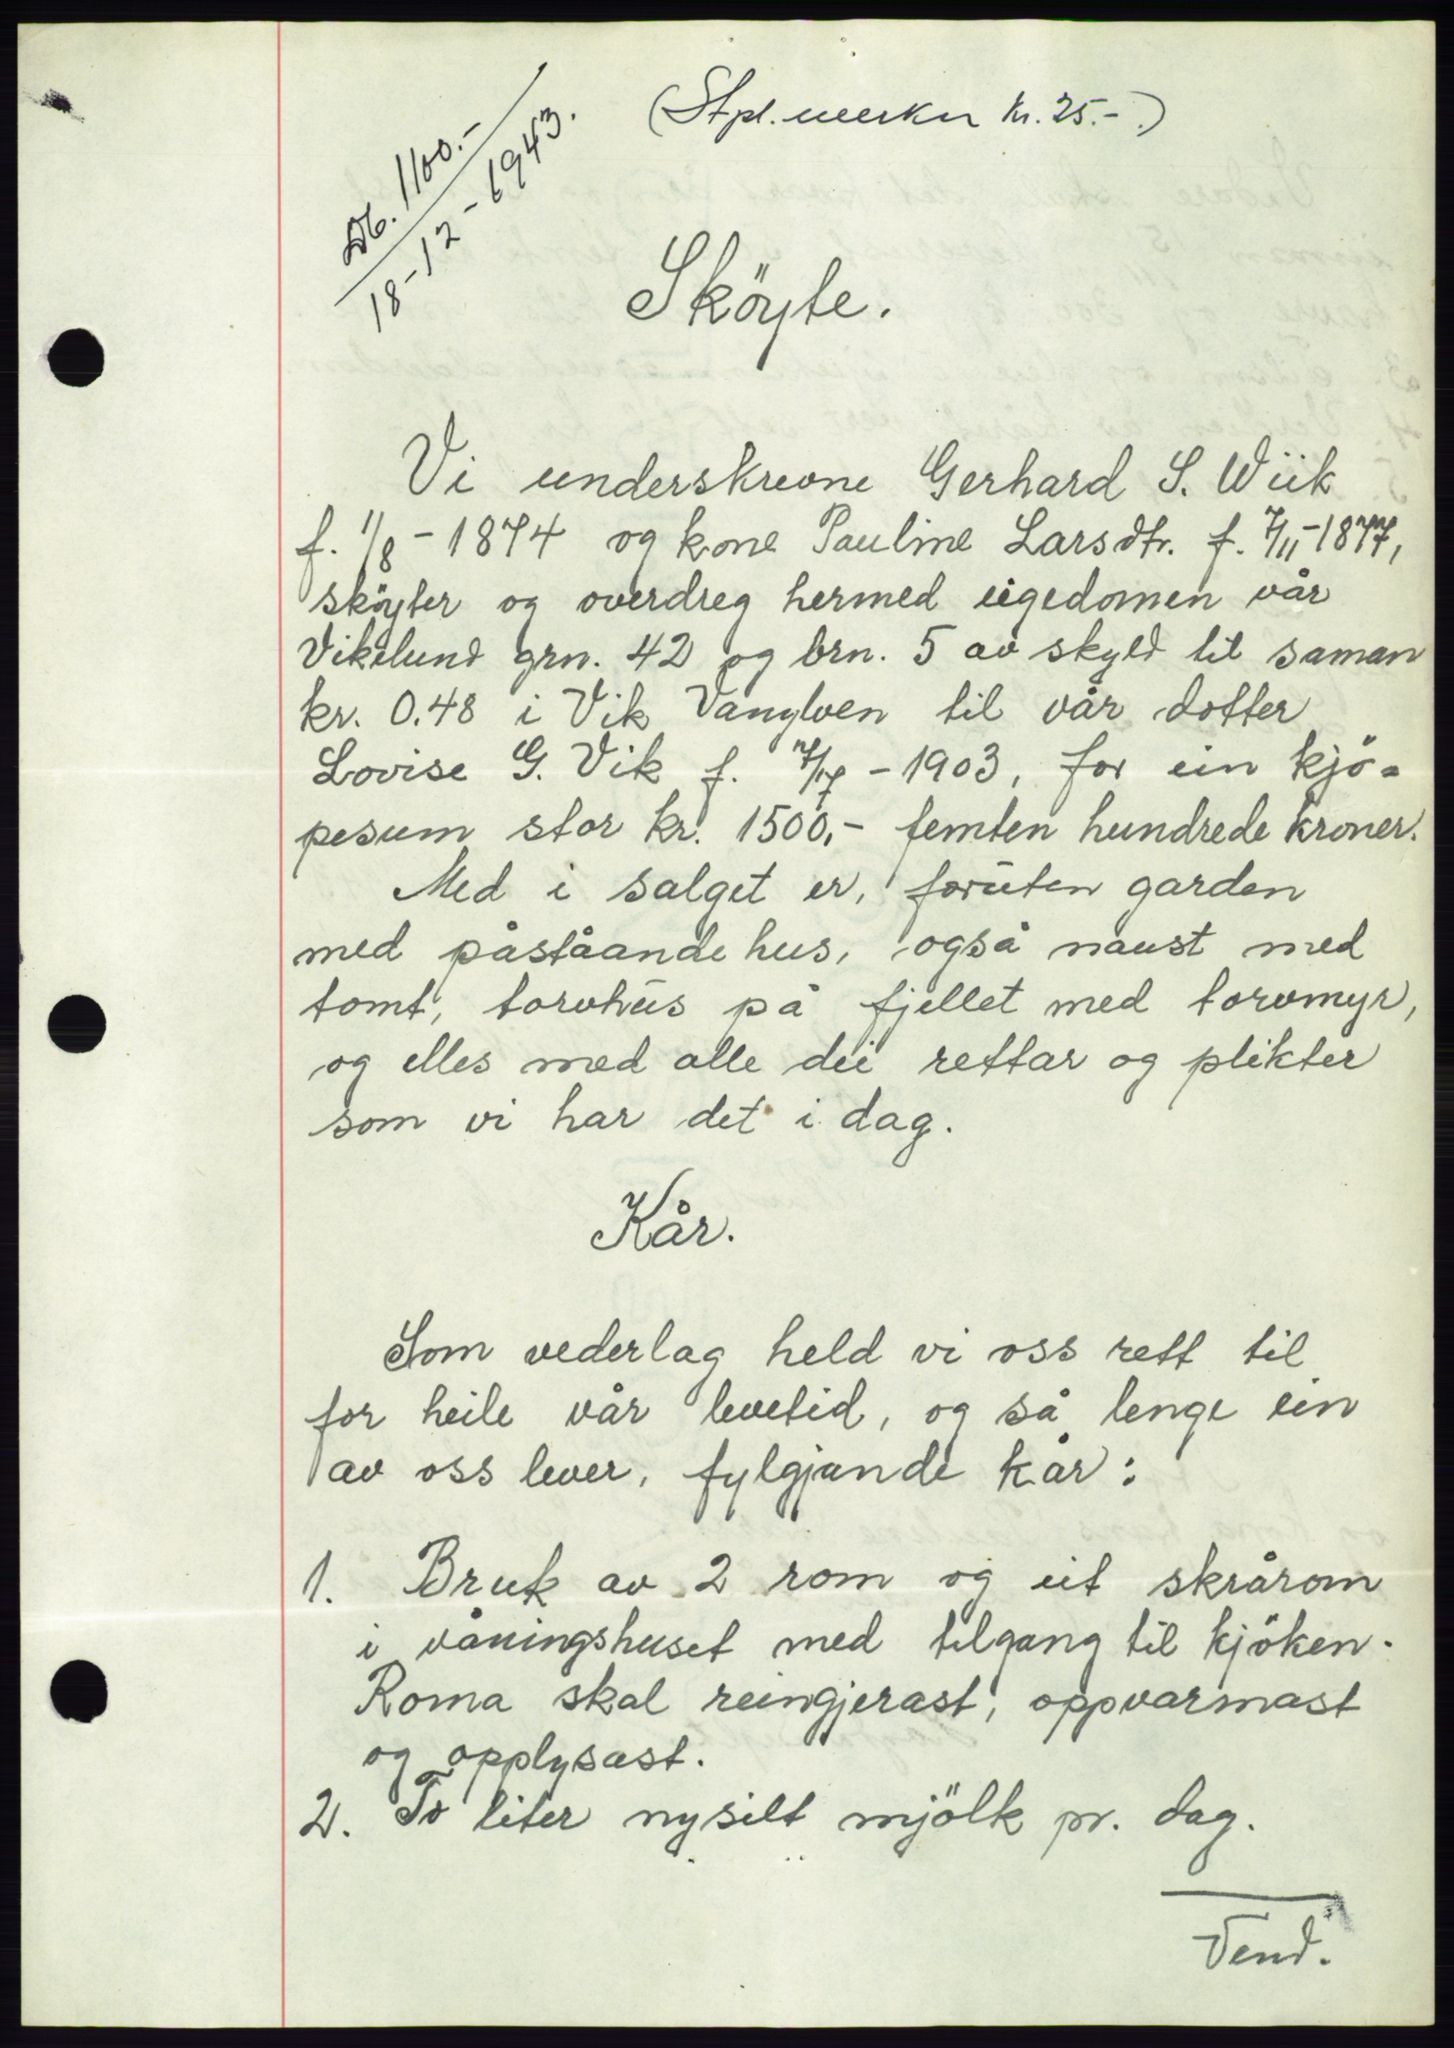 (Stpl.merker kr. 25.-.)
Db. 1100.-
18-12-1943.
Sköyte.
Vi underskrevne Gerhard S. Wiik
f. 1/8-1874 og kone Pauline Larsdtr. f. 7/11-1877,
sköyter og overdreg hermed eigedomen vår
Vikelund grn. 42 og brn. 5 av skyld til saman
kr. 0.48 i Vik Vanylven til vår dotter
Lovise G. Vik f. -1903, for ein kjö=
pesum stor kr. 1500,- femten hundrede kroner.
Med i salget er, foruten garden
med påståande hus, også naust med
tomt, torvhus på fjellet med torvmyr,
og elles med alle dei rettar og plikter
som vi har det i dag.
Kår.
Som vederlag held vi oss rett til
for heile vår levetid, og så lenge ein
av oss lever, fylgjande kår:
1. Bruk av 2 rom og eit skrårom
i våningshuset med tilgang til kjöken.
Roma skal reingjerast, oppvarmast
og opplysast.
2. To liter nysilt mjölk pr. dag.
Vend.